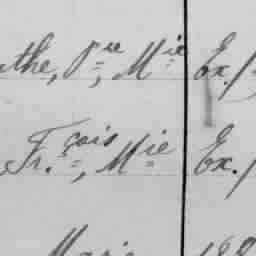 the, Pre, Mie Ex./
Fr.çois, Mie Ex./
Marie 188